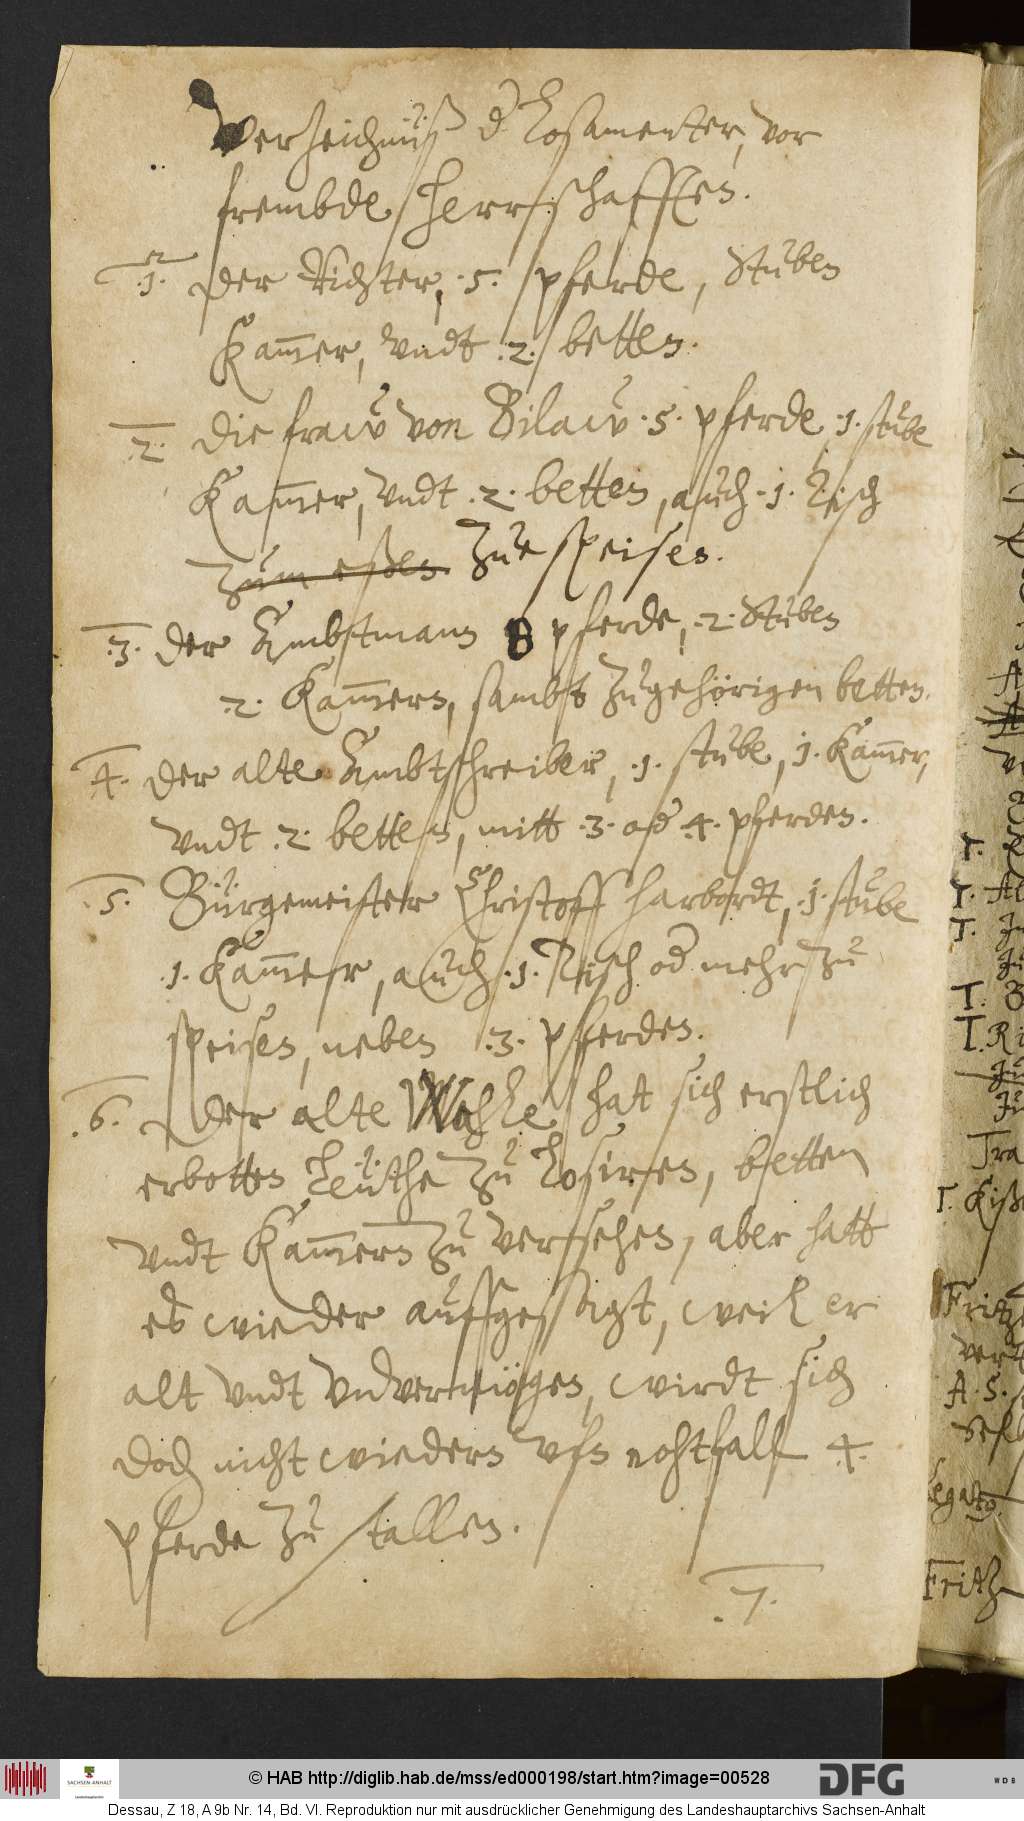 Verzeichnüß d Losamenter, vor
frembde Herrschafften.
.1. Der Richter, .5. pferde, Stuben
Kam̅er, vndt .2. betten.
.2. Die fraw von Bilaw .5. pferde .1. stube
Kam̅er, vndt .2. betten, auch .1. Tisch
zum eßen zue speisen.
.3. Der Ambtmann 8 pferde, .2. Stuben
.2. Kam̅ern, sambt zugehörigen betten.
.4. Der alte Ambtschreiber, .1. stube, .1. Kam̅er,
vndt .2. betten, mitt .3. od .4. pferden.
.5. Bürgemeister Christoff Harbordt, .1. stube
.1. Kam̅er, auch .1. Tisch od mehr zu
speisen, neben .3. pferden.
.6. Der alte hat sich erstlich
erbotten Leüthe zu Losiren, betten
vndt Kam̅ern zu versehen, aber hatt
es wieder auffgesagt, weil er
alt vndt vnvermögen, wirdt sich
doch nicht wiedern vfn nohtfall .4.
pferde zu stallen.
.7.
T.
T.
T.
T.
T. Ri
Tra
T.
Fritz
A. S.
Legat
Fritz
SACHSEN-ANHALT
Landeshauptarchiv
© HAB http://diglib.hab.de/mss/ed000198/start.htm?image=00528
DFG
WDB
Dessau, Z 18, A 9b Nr. 14, Bd. VI. Reproduktion nur mit ausdrücklicher Genehmigung des Landeshauptarchivs Sachsen-Anhalt